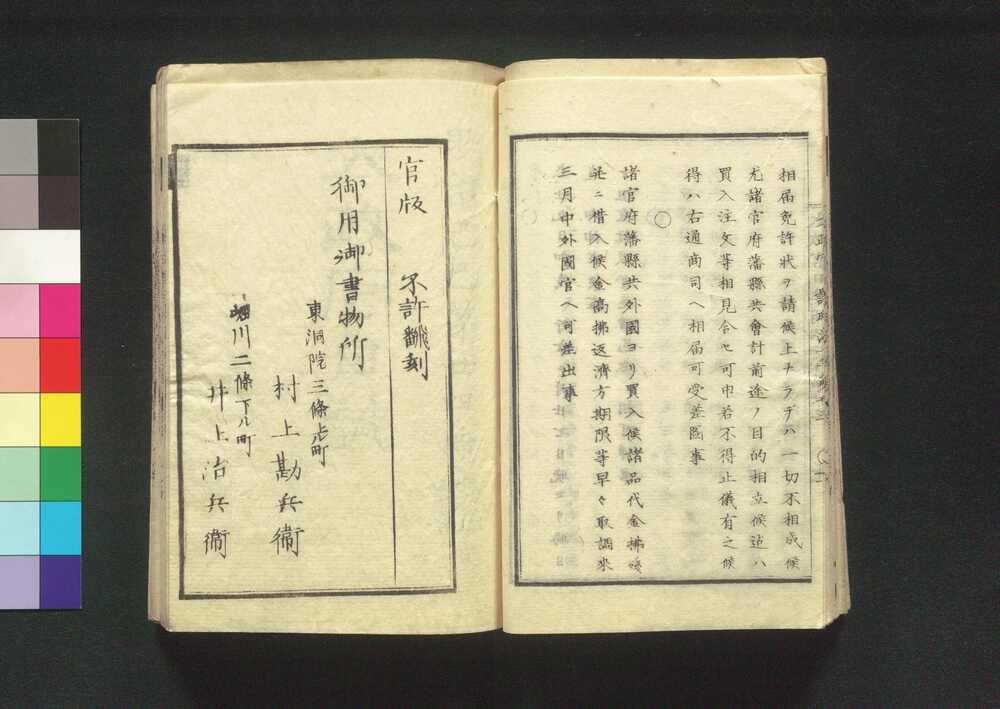 相届免許状ヲ請候上ナラデハ一切不相成候
尤諸官府藩縣共會計前途ノ目的相立候迄ハ
買入注文等相見合セ可申若不得止儀有之候
得ハ右通商司ヘ相届可受差圖事
○
諸官府藩縣共外國ヨリ買入候諸品代金拂殘
並ニ借入候金高拂返濟方期限等早々取調來
三月中外國官ヘ可差出事
官版 不許飜刻
御用御書物所
東洞院三條上ル町
村上勘兵衞
堀川二條下ル町
井上治兵衞